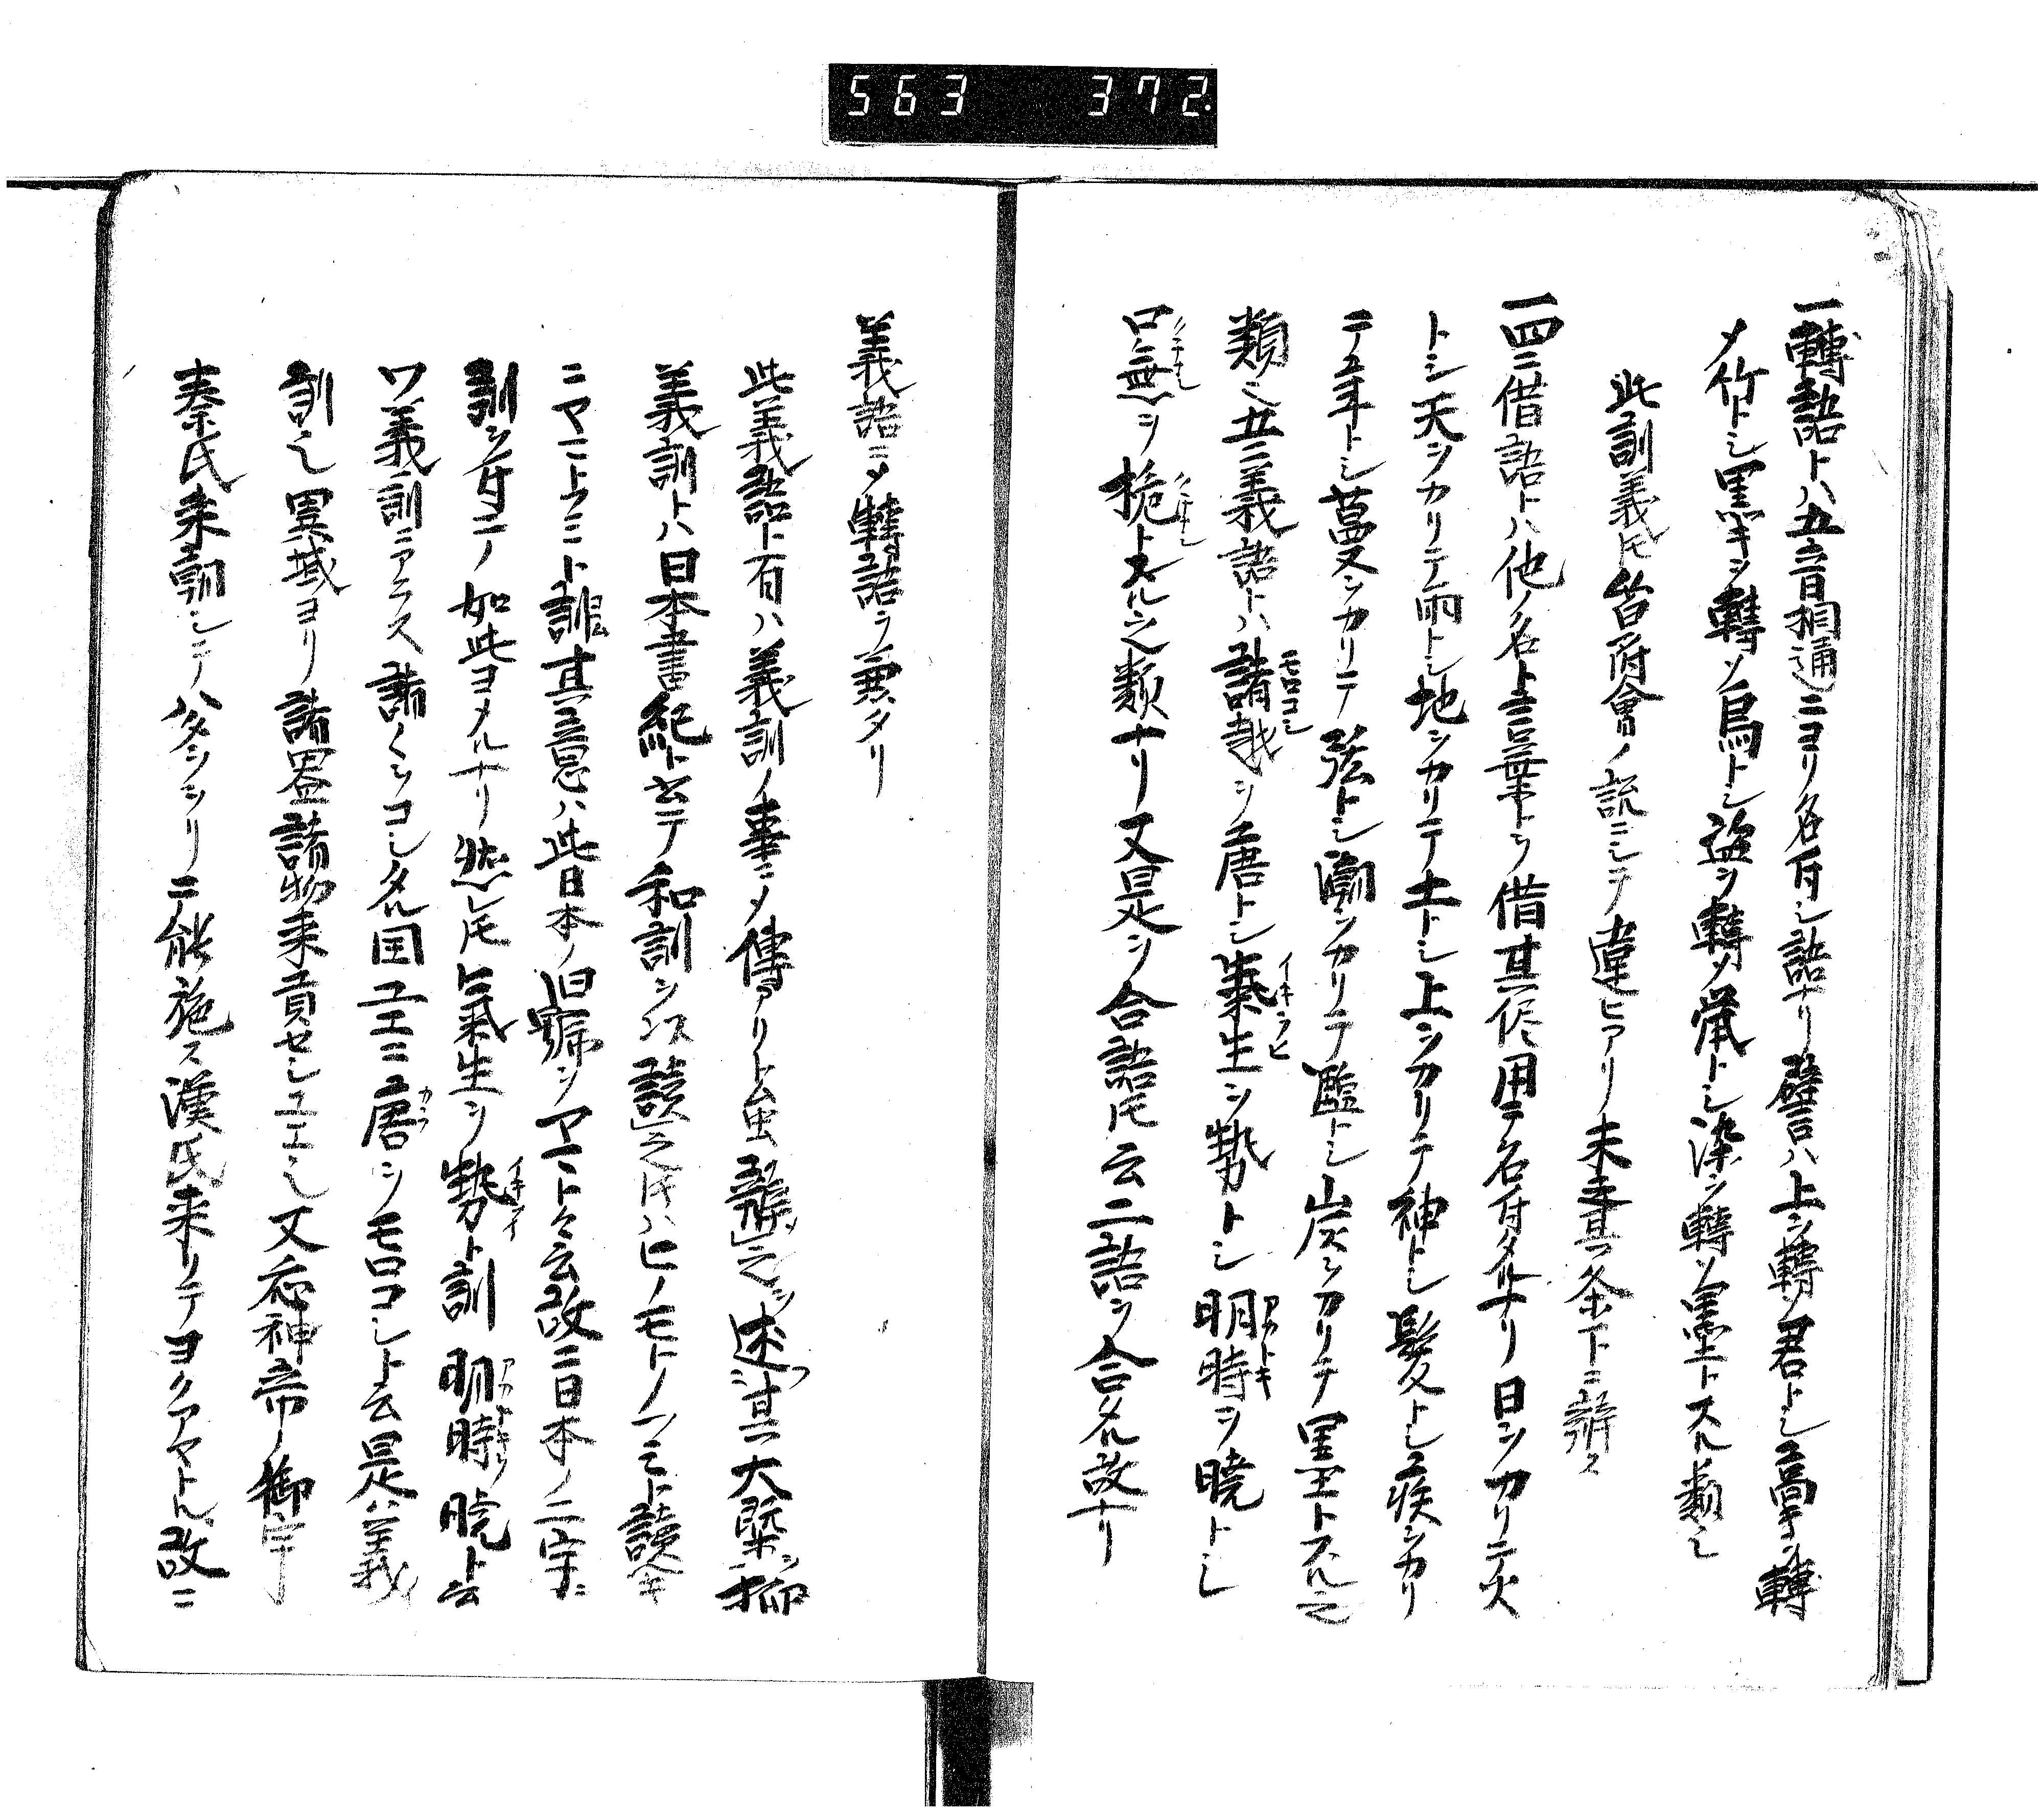 563 372
一轉語トハ五音相通ニヨリ名付シ語ナリ譬ハ上ヲ轉ソ君トシ高キヲ轉
メ竹トシ黒キヲ轉ソ烏トシ盗ヲ轉メ當トシ染ヲ轉ソ墨トスル類之
此訓義𪜈皆附會ノ説ニシテ違ヒアリ未書其条下ニ辯ス
一四ニ借語トハ他ノ名ト言葉トヲ借其侭用テ名付タルナリ日ヲカリニ火
トシ天ヲカリテ雨トシ地ヲカリテ土トシ上ヲカリテ神トシ髪トシ疾ヲカリ
テ年トシ蔓ヲカリテ弦トシ潮ヲカリテ塩トシ炭ヲカリテ墨トスル之
類之五ニ義語トハ諸越ヲ唐トシ氣生ヲ勢トシ明時ヲ暁トシ
口無ヲ梔トスル之類ナリ又是ヲ合語𪜈云二語ヲ合メル故ナリ
義語ニメ轉語ヲ兼タリ
此義語ト有ハ義訓ノ事ニメ傳アリト虽辯之ヲ述其大槩ヲ抑
義訓トハ日本書紀ト云テ和訓ヲ以讀之𪜈ハヒノモトノフミト讀ヘキ
ニヤマトフミト訓其意ハ此日本ノ旧号ヲヤマトト云改ニ日本ノ二字ニ
訓ヲ付テ如此ヨメルナリ然レ𪜈氣生ヲ勢ト訓明時ヲ暁ト云
ワ義訓ニアラス諸〱ヲコシタル国ユエニ唐ヲモロコシト云是ハ義
訓之異域ヨリ諸器諸物来貢セシユエ之又応神帝ノ御宇
秦氏来朝シテハタヲリニ能施ス漢氏来リテヨクアヤトル故ニ